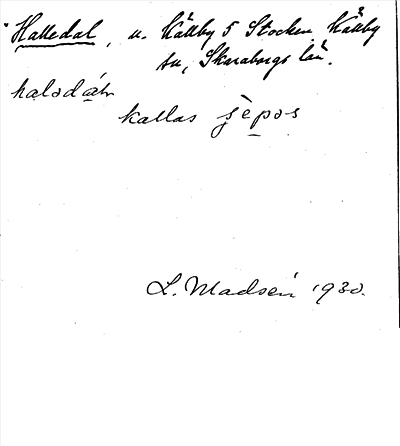 Halledal, u. Källby 5 Stocken, Källby
sn, Skaraborgs län.
halodär
kallas sèpos
L. Madsén 1930.